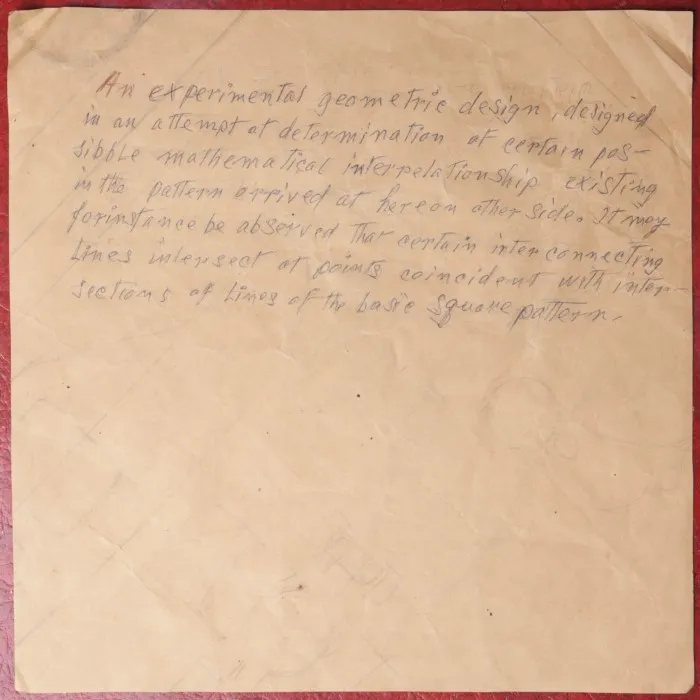 An experimental geometric design, designed
in an attempt at determination of certain pos-
sibble mathematical interpelationship existing
in the pattern arrived at hereon other side. It may
forinstance be observed that certain interconnecting
Lines intersect at points coincident with inter-
sections of Lines of the basic square pattern.